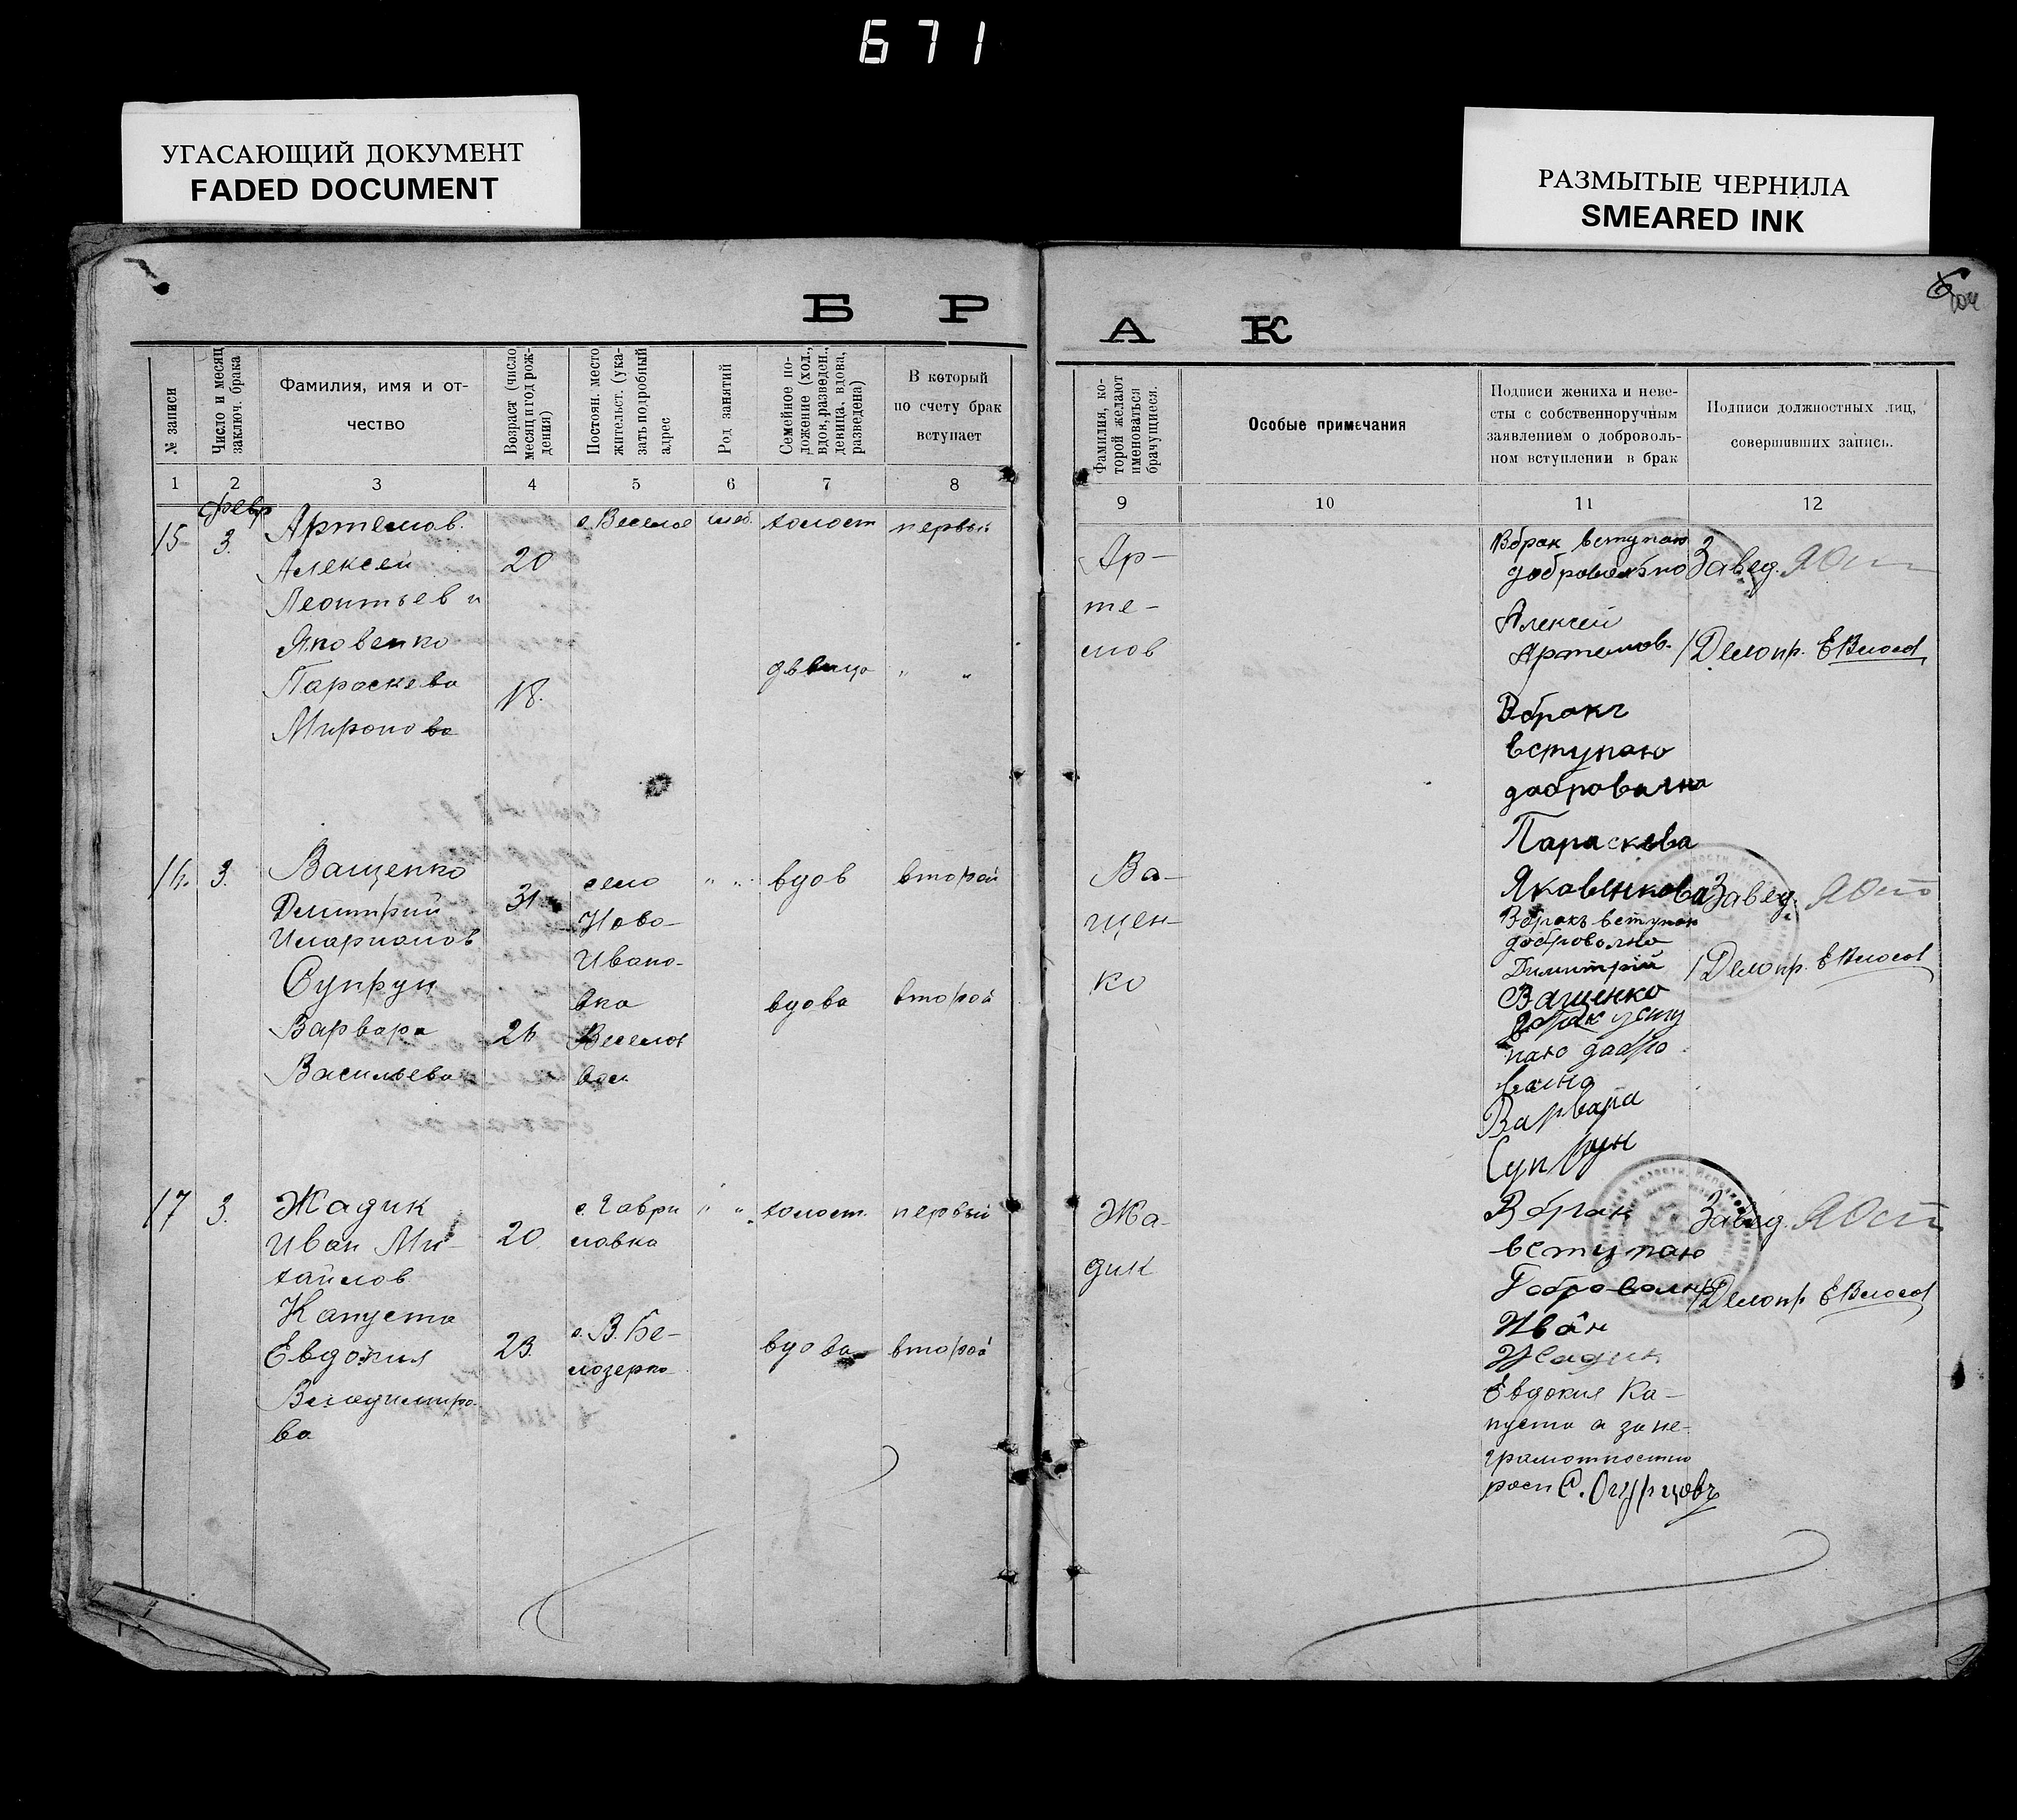 671
УГАСАЮЩИЙ ДОКУМЕНТ
FADED DOCUMENT
РАЗМЫТЫЕ ЧЕРНИЛА
SMEARED INK
Б Р А К
№ записи
Число и месяц
заключ. брака
Фамилия, имя и от-
чество
Возраст (число
месяц и год рож-
дения)
Постоян. место
жительст. (ука-
зать подробный
адрес
Род занятий
Семейное по-
ложение (хол.,
вдов, разведен.,
девица, вдова,
разведена)
В который
по счету брак
вступает
Фамилия, ко-
торой желают
именоваться
брачущиеся.
Особые примечания
Подписи жениха и неве-
сты с собственноручным
заявлением о доброволь-
ном вступлении в брак
Подписи должностных лиц,
совершивших запись.
1 2 3 4 5 6 7 8 9 10 11 12
февр
15 3.
Артемов.
Алексей
Леонтьев и
Яковенко
Параскева
Миронова
20
18.
с. Веселое
холост
первый
девица
" "
Ар-
те-
мов
В брак вступаю
добровольно
Алексей
Артемов.
В бракъ
вступаю
добровална
Параскева
Яковенкова
Завед.
Делопр.
16. 3.
Ващенко
Дмитрий
Иларионов
Супрун
Варвара
Васильева
31
26
село
Ново-
Ивано-
вка
" "
вдов
второй
вдова
второй
Ва-
щен-
ко
В бракъ вступаю
доброволно
Димитрий
Ващенко
Варвара
Супрун
Завед.
Делопр.
17 3.
Жадик
Иван Ми-
хайлов
Капуста
Евдокия
Владимиро-
ва
20
23.
с. Гаври
ловка
с. В. Бе-
лозерка
" "
холост.
первый
вдова
второй
Жа-
дик
В брак
вступаю
Доброволно
Иван
Жадик
Евдокия Ка-
пуста а за не-
грамотностью
росп С. Огурцовъ
Завед.
Делопр.